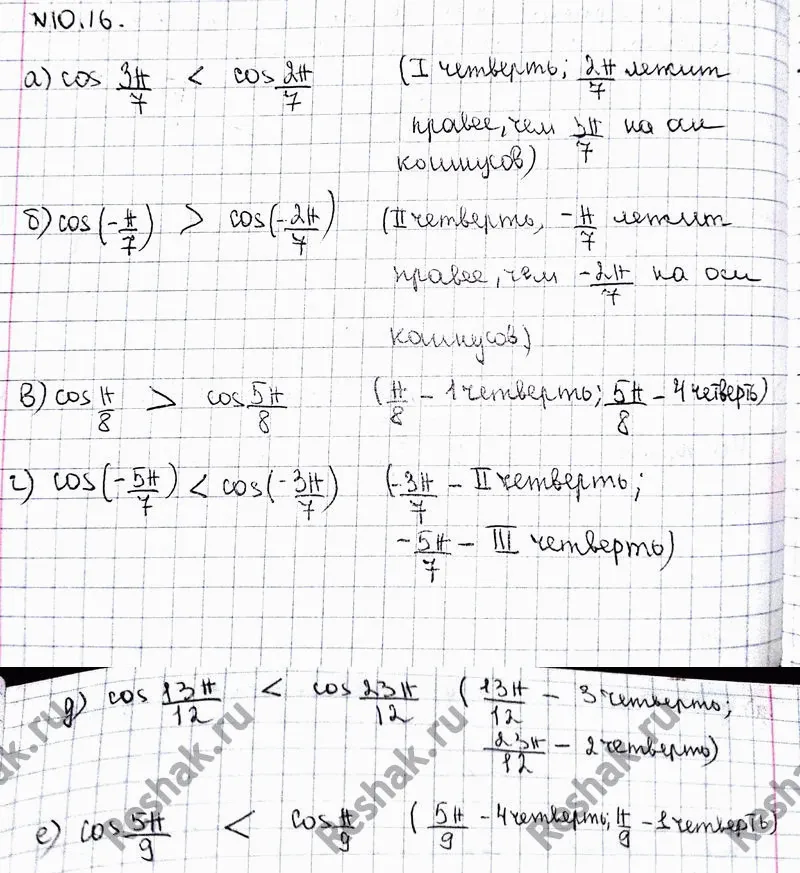 №10.16.
а) cos 3π/7 < cos 2π/7 (I четверть; 2π/7 лежит
правее, чем 3π/7 на оси
косинусов)
б) cos(-π/7) > cos(-2π/7) (II четверть, -π/7 лежит
правее, чем -2π/7 на оси
косинусов)
в) cos π/8 > cos 5π/8 (π/8 – 1 четверть; 5π/8 – 4 четверть)
г) cos(-5π/7) < cos(-3π/7) (-3π/7 – II четверть;
-5π/7 – III четверть)
д) cos 13π/12 < cos 23π/12 (13π/12 – 3 четверть;
23π/12 – 2 четверть)
е) cos 5π/9 < cos π/9 (5π/9 – 4 четверть; π/9 – 1 четверть)
Reshak.ru
Reshak.ru
Reshak.ru
Reshak.ru